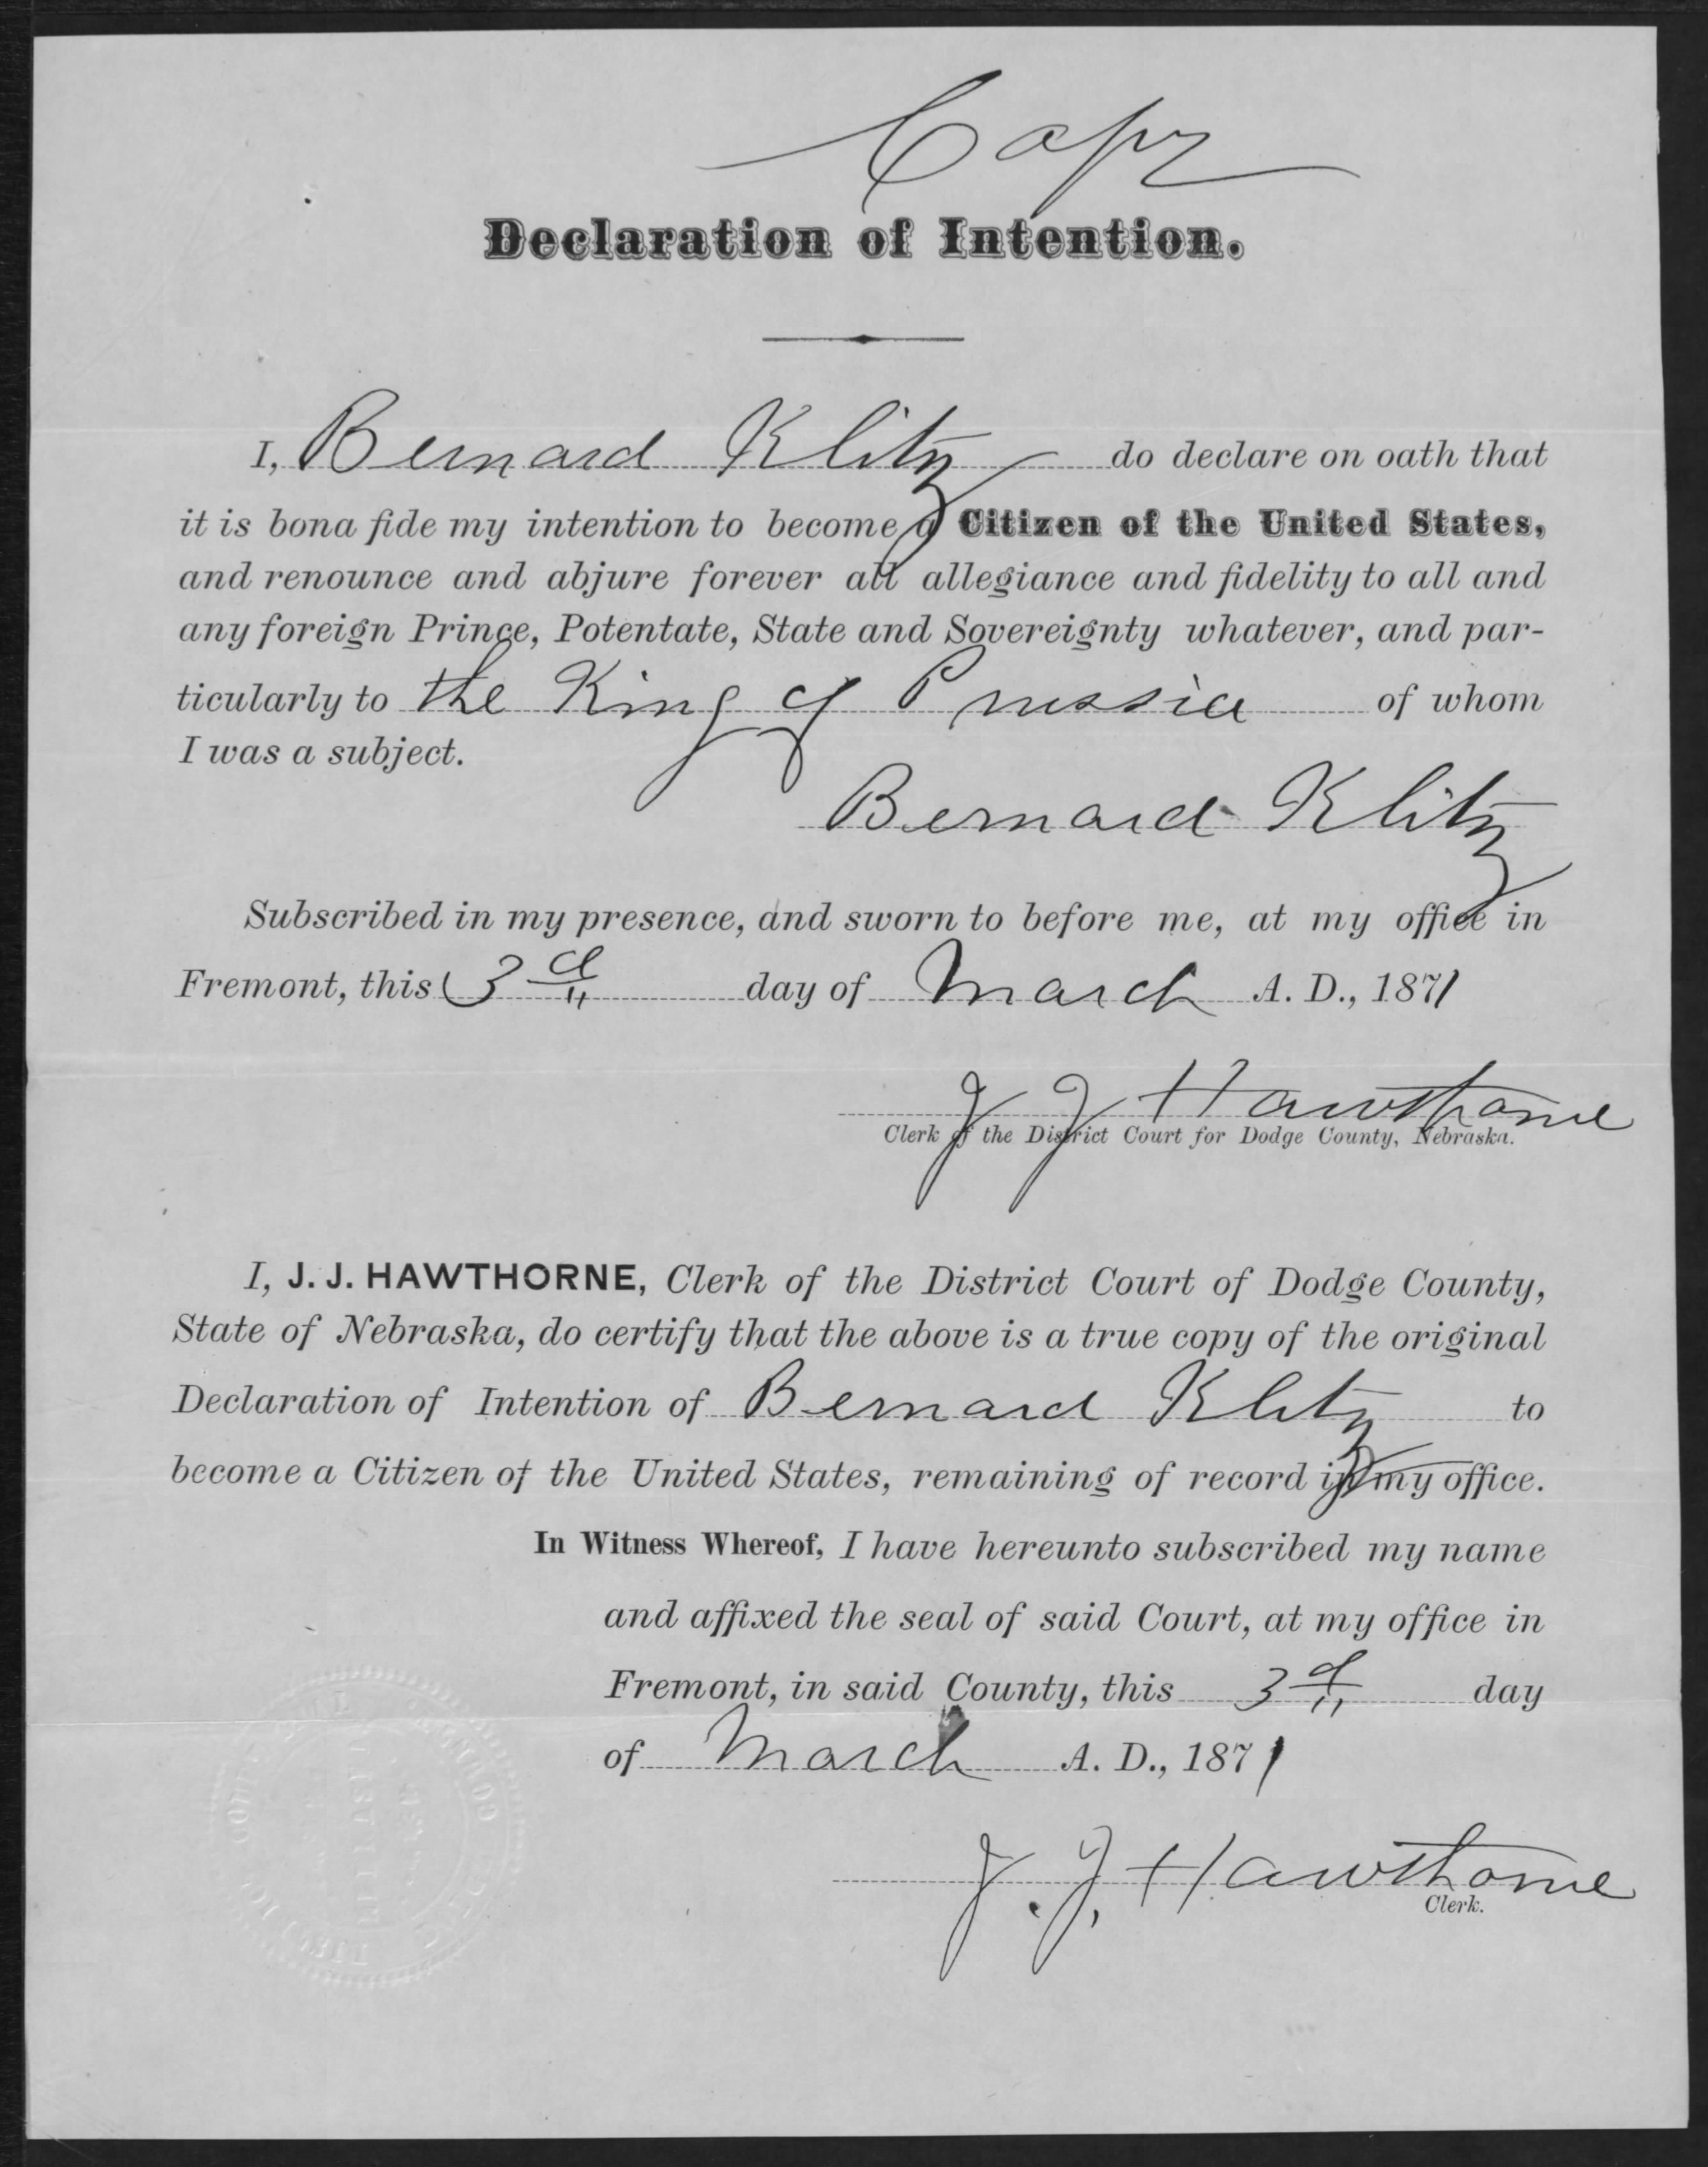 Copy
Declaration of Intention.
I, Bernard Klitz do declare on oath that
it is bona fide my intention to become a Citizen of the United States,
and renounce and abjure forever all allegiance and fidelity to all and
any foreign Prince, Potentate, State and Sovereignty whatever, and par-
ticularly to the King of Prussia of whom
I was a subject.
Bernard Klitz
Subscribed in my presence, and sworn to before me, at my office in
Fremont, this 3d day of March A. D., 1871
J J Hawthorne
Clerk of the District Court for Dodge County, Nebraska.
I, J. J. HAWTHORNE, Clerk of the District Court of Dodge County,
State of Nebraska, do certify that the above is a true copy of the original
Declaration of Intention of Bernard Klitz to
become a Citizen of the United States, remaining of record in my office.
In Witness Whereof, I have hereunto subscribed my name
and affixed the seal of said Court, at my office in
Fremont, in said County, this 3d day
of March A. D., 1871
J. J. Hawthorne
Clerk.